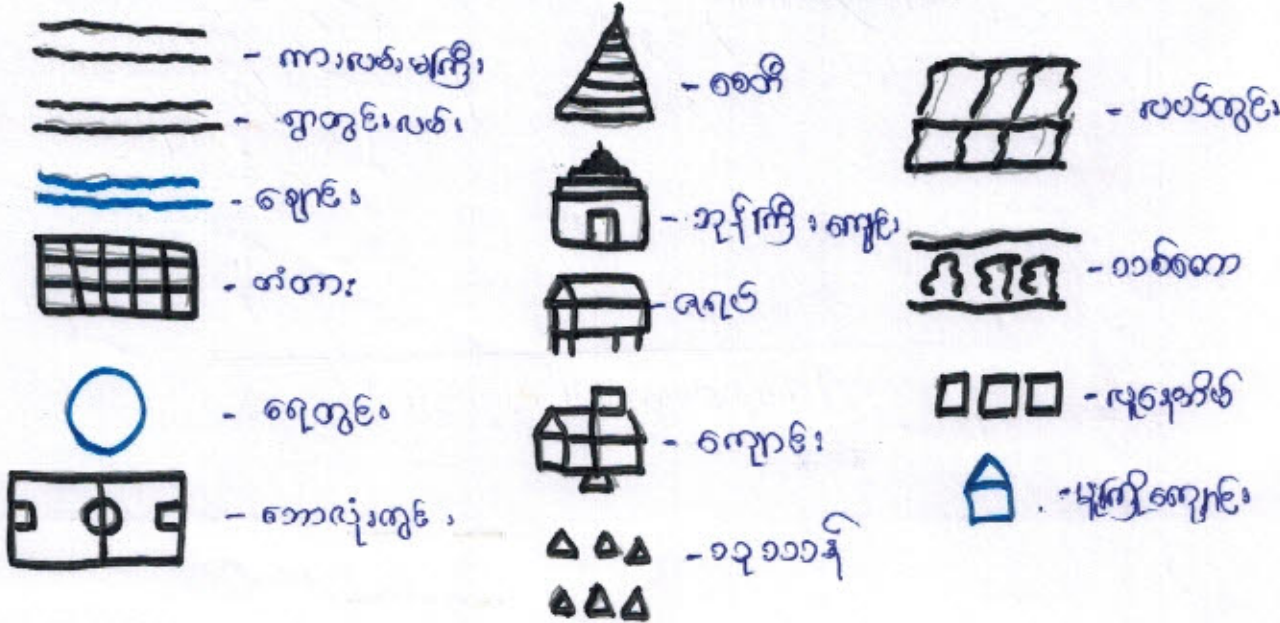 - ကားလမ်းမကြီး
- ရွာတွင်းလမ်း
- ချောင်း
- တံတား
- ရေတွင်း
- ဘောလုံးကွင်း
- စေတီ
- ဘုန်းကြီးကျောင်း
- ဇရပ်
- ကျောင်း
- သုသာန်
- လယ်ကွင်း
- သစ်တော
- လူနေအိမ်
- မူကြိုကျောင်း